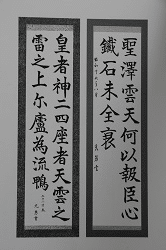 聖澤雲天何以報臣心
鐵石未全衰
皇者神二四座者天雲之
雷之上尓廬為流鴨